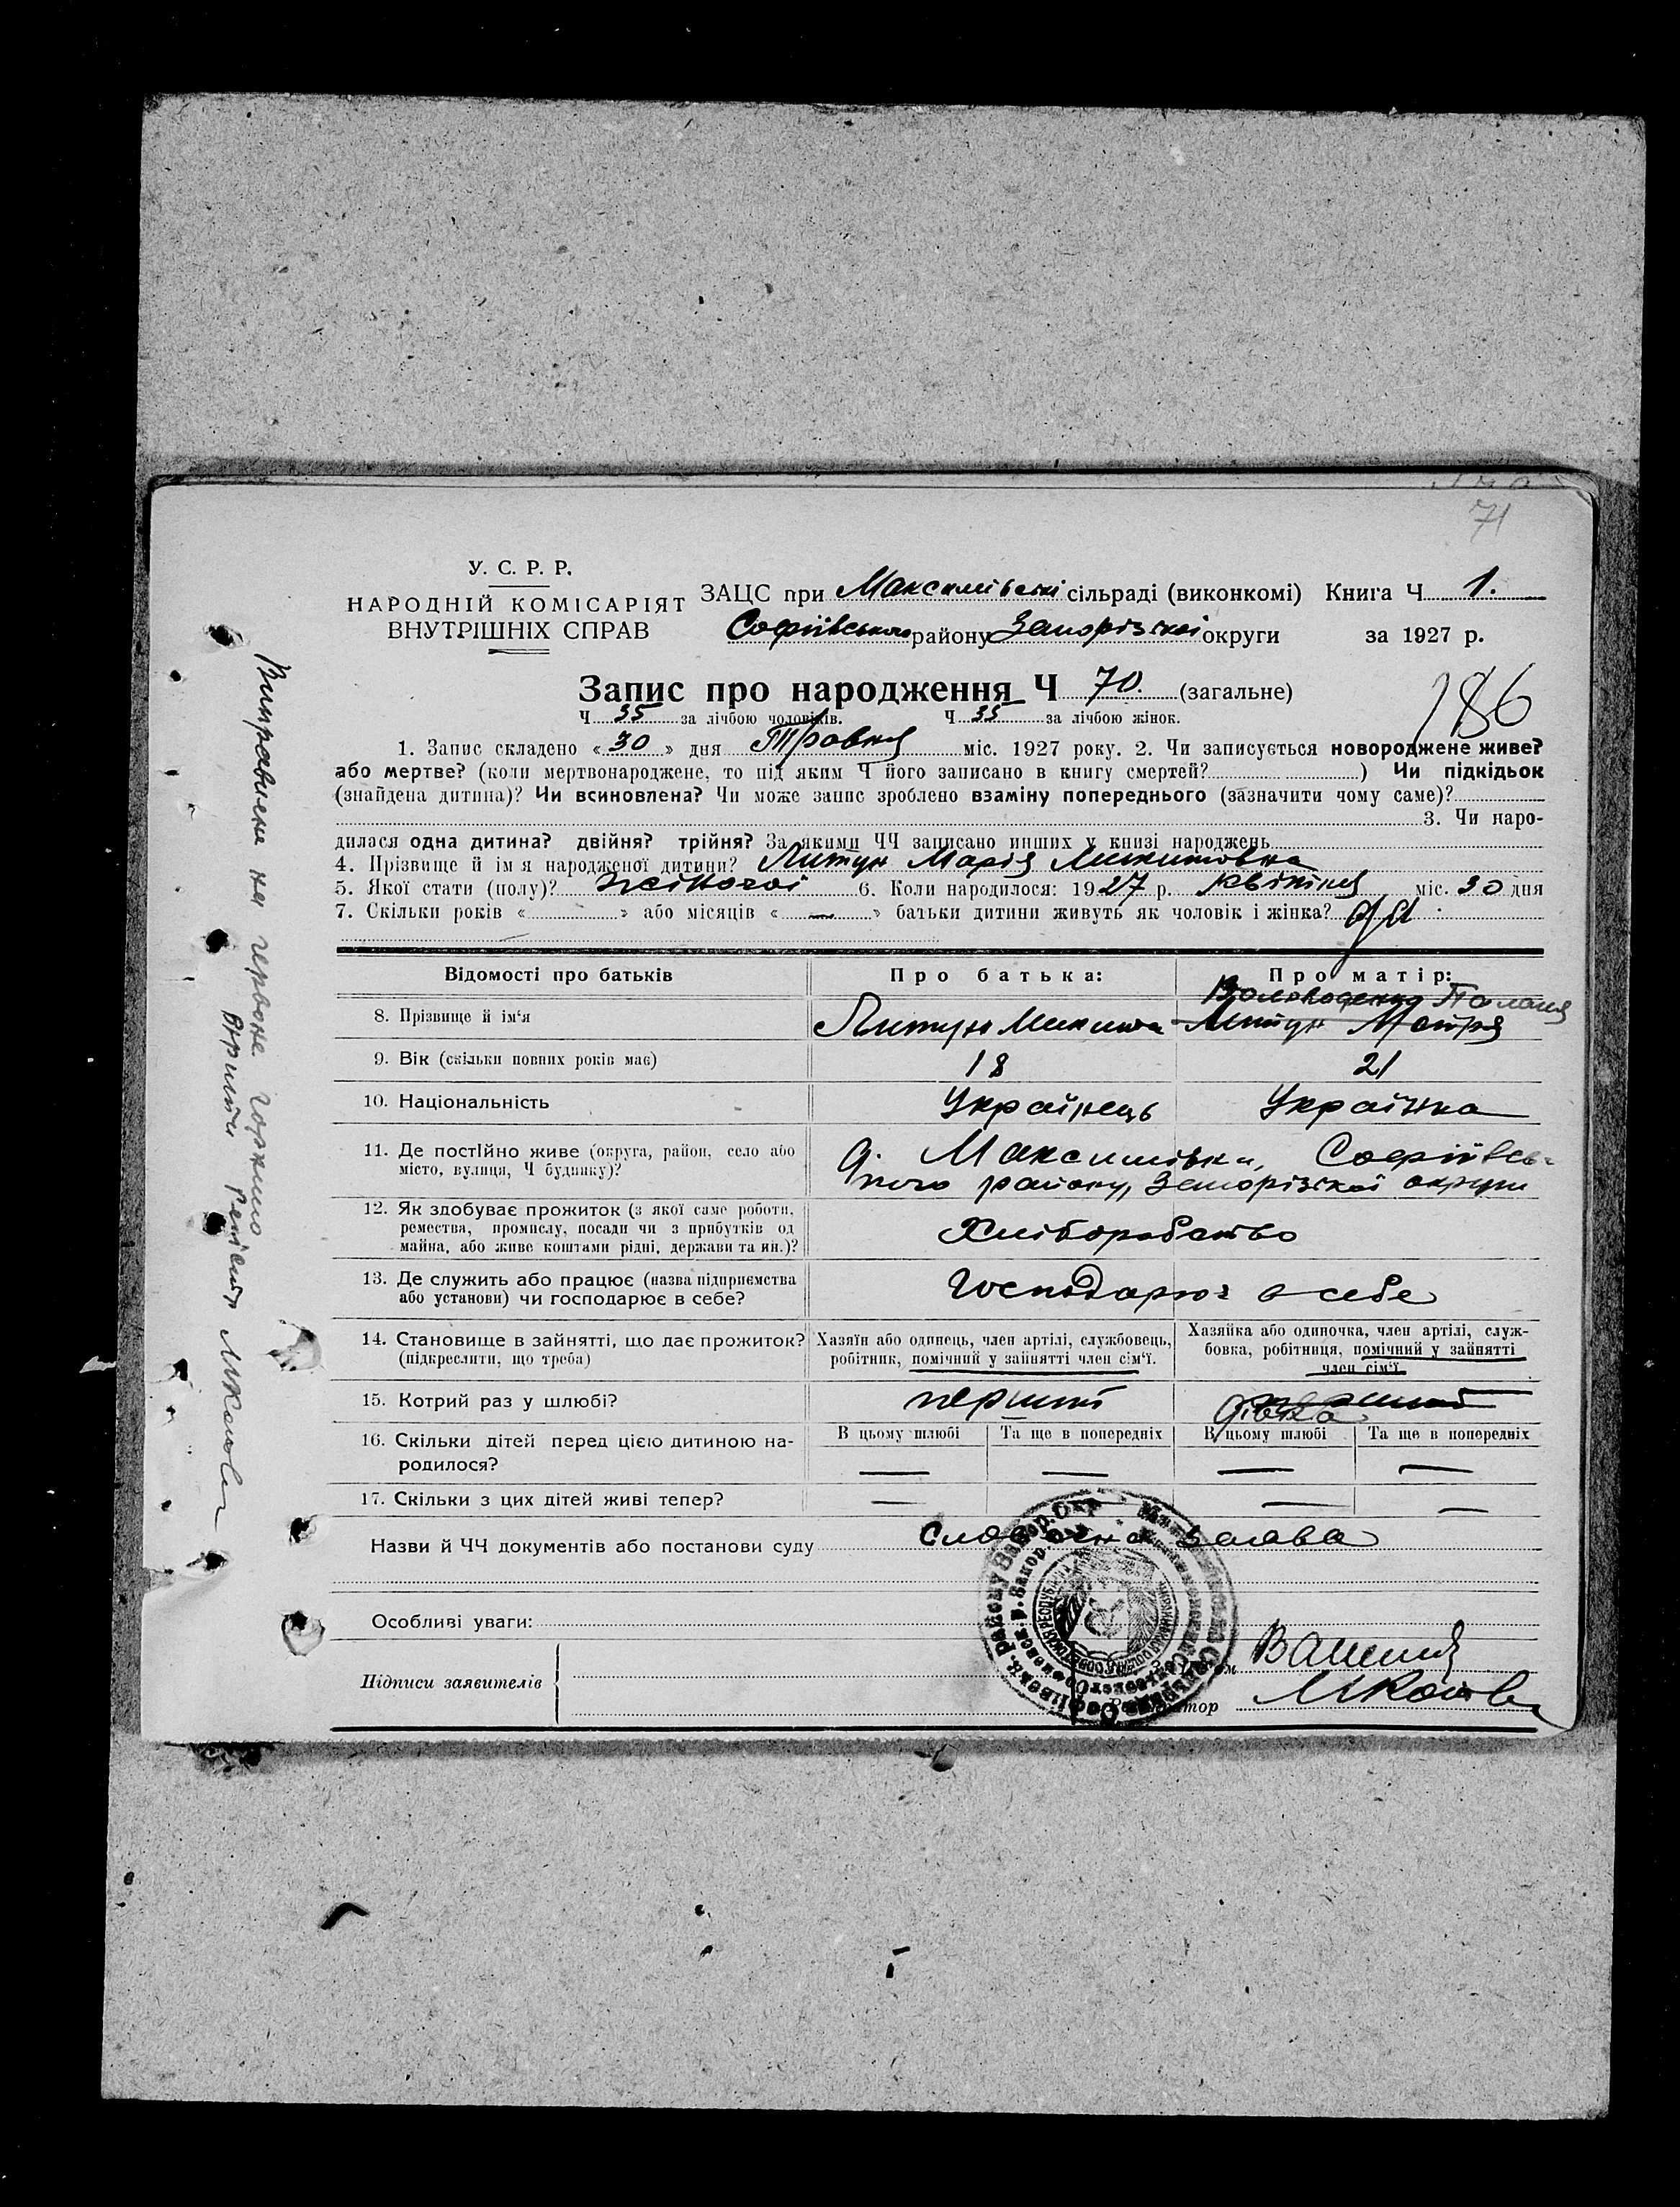 71
У. С. Р. Р.
НАРОДНІЙ КОМІСАРІЯТ
ВНУТРІШНІХ СПРАВ
ЗАЦС при Максимівські сільраді (виконкомі) Книга Ч 1.
Софіївського району Запорізької округи за 1927 р.
Запис про народження Ч 70. (загальне)
186
Ч 35 за лічбою чоловіків. Ч 35 за лічбою жінок.
1. Запис складено «30» дня Травня міс. 1927 року. 2. Чи записується новороджене живе?
або мертве? (коли мертвонароджене, то під яким Ч його записано в книгу смертей? ) Чи підкідьок
(знайдена дитина)? Чи всиновлена? Чи може запис зроблено взаміну попереднього (зазначити чому саме)?
3. Чи наро-
дилася одна дитина? двійня? трійня? За якими ЧЧ записано инших у книзі народжень
4. Прізвище й ім я народженої дитини? Литун Марія Микитовна
5. Якої стати (полу)? Жіночої 6. Коли народилося: 1927 р. квітня міс. 30 дня
7. Скільки років « » або місяців « — » батьки дитини живуть як чоловік і жінка? да
Відомості про батьків
Про батька:
Про матір:
8. Прізвище й ім'я
Литун Микита
Литун Мотря
9. Вік (скільки повних років має)
18
21
10. Національність
Українець
Українка
11. Де постійно живе (округа, район, село або
місто, вулиця, Ч будинку)?
Максимівка, Софіївсь-
кого району, Запорізької округи
12. Як здобуває прожиток (з якої саме роботи,
ремества, промислу, посади чи з прибутків од
майна, або живе коштами рідні, держави та ин.)?
Хліборобство
13. Де служить або працює (назва підприємства
або установи) чи господарює в себе?
Господарює в себе
14. Становище в зайнятті, що дає прожиток?
(підкреслити, що треба)
Хазяїн або одинець, член артілі, службовець,
робітник, помічний у зайнятті член сім'ї.
Хазяйка або одиночка, член артілі, служ-
бовка, робітниця, помічний у зайнятті
член сім'ї
15. Котрий раз у шлюбі?
перший
перший
дівка
16. Скільки дітей перед цією дитиною на-
родилося?
В цьому шлюбі
Та ще в попередніх
В цьому шлюбі
Та ще в попередніх
17. Скільки з цих дітей живі тепер?
Назви й ЧЧ документів або постанови суду
Словесна заява
Особливі уваги:
Підписи заявителів